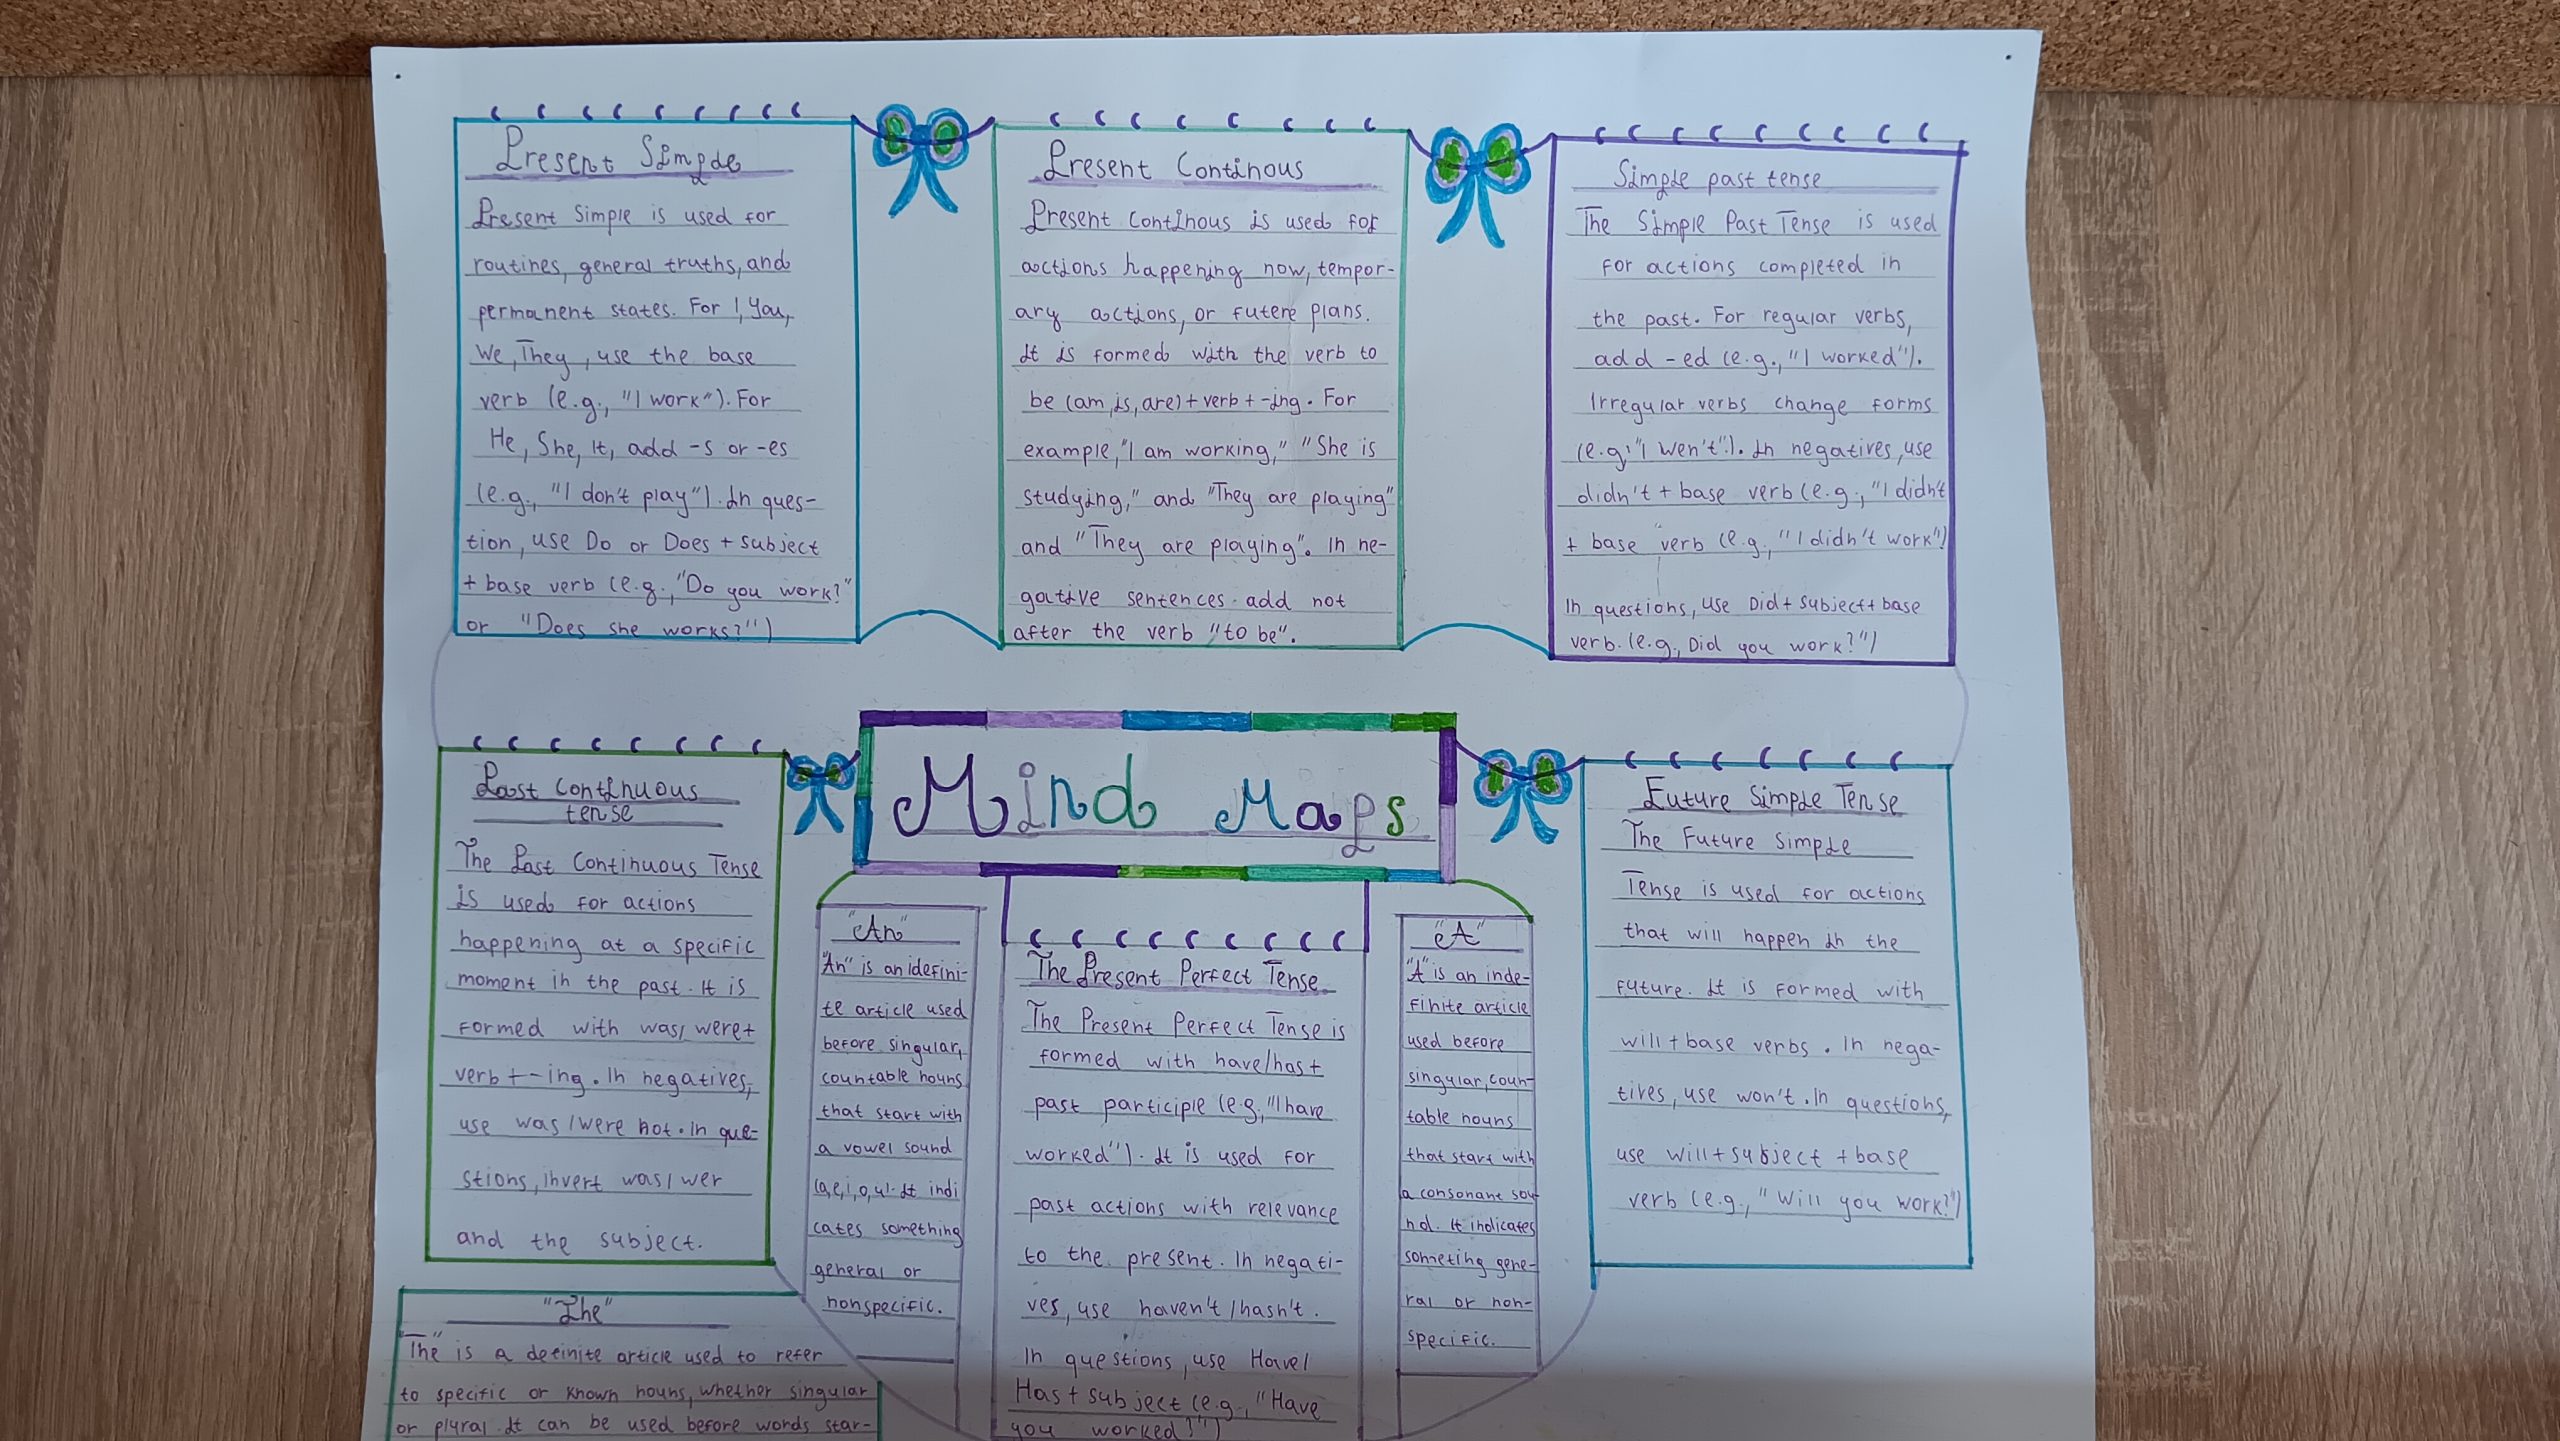 Present Simple
Present Simple is used for
routines, general truths, and
permanent states. For I, You,
We, They, use the base
verb (e.g., "I work"). For
He, She, It, add -s or -es
(e.g., "I don't play"). In ques-
tion, use Do or Does + subject
+ base verb (e.g., "Do you work?"
or "Does she works?")
Present Continous
Present Continous is used for
actions happening now, tempor-
ary actions, or futere plans.
It is formed with the verb to
be (am, is, are) + verb + -ing. For
example, "I am working," "She is
studying," and "They are playing"
and "They are playing". In ne-
gative sentences add not
after the verb "to be".
Simple past tense
The Simple Past Tense is used
for actions completed in
the past. For regular verbs,
add -ed (e.g., "I worked").
Irregular verbs change forms
(e.g: "I wen't"). In negatives, use
didn't + base verb (e.g., "I didn't
+ base verb (e.g., "I didn't work")
In questions, use Did + subject + base
verb. (e.g., Did you work?")
Past Continuous
tense
The Past Continuous Tense
is used for actions
happening at a specific
moment in the past. It is
formed with was/were +
verb + -ing. In negatives,
use was/were not. In que-
stions, invert was/wer
and the subject.
Mind Maps
Future Simple Tense
The Future Simple
Tense is used for actions
that will happen in the
future. It is formed with
will + base verbs. In nega-
tives, use won't. In questions,
use will + subject + base
verb (e.g., "Will you work?")
"An"
"An" is an idefini-
te article used
before singular,
countable nouns
that start with
a vowel sound
(a,e,i,o,u). It indi
cates something
general or
nonspecific.
The Present Perfect Tense
The Present Perfect Tense is
formed with have/has +
past participle (e.g., "I have
worked"). It is used for
past actions with relevance
to the present. In negati-
ves, use haven't/hasn't.
In questions, use Have/
Has + subject (e.g., "Have
you worked?")
"A"
"A" is an inde-
finite article
used before
singular, coun-
table nouns
that start with
a consonant sou-
nd. It indicates
someting gene-
ral or non-
specific.
"The"
"The" is a definite article used to refer
to specific or known nouns, whether singular
or plural. It can be used before words star-